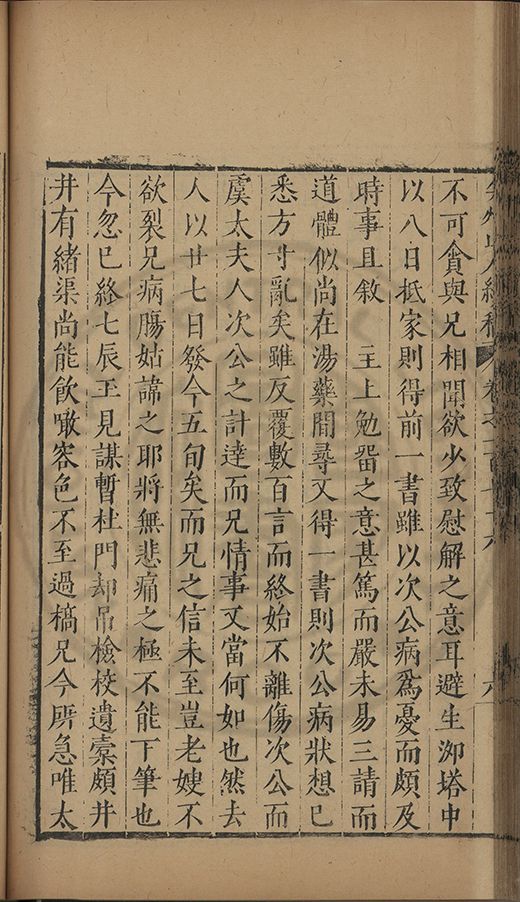 不可貪與兄相聞欲少致慰解之意耳避生泖塔中
以八日抵家則得前一書雖以次公病爲憂而頗及
時事且敘 主上勉畱之意甚篤而嚴未易三請而
道體似尚在湯藥間尋又得一書則次公病狀想已
悉方寸亂矣雖反覆數百言而終始不離傷次公而
虞太夫人次公之訃達而兄情事又當何如也然去
人以廿七日發今五旬矣而兄之信未至豈老嫂不
欲裂兄病膓姑諦之耶將無悲痛之極不能下筆也
今忽已終七辰玊見謀暫杜門却吊檢校遺槀頗井
井有緒渠尚能飲噉容色不至過槁兄今所急唯太